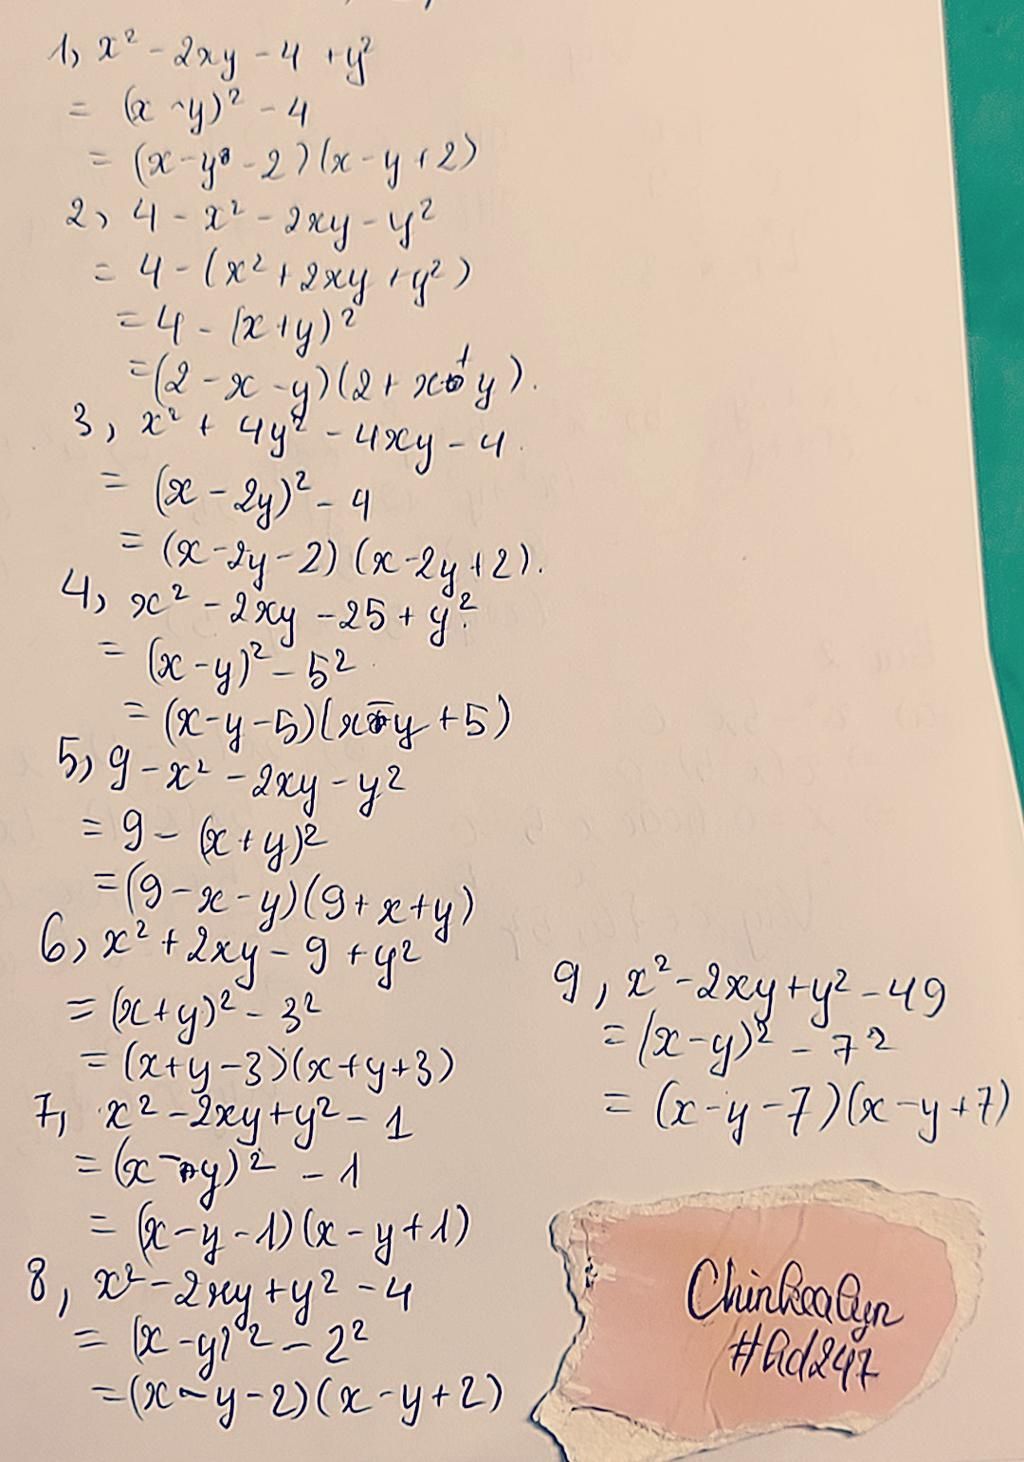 1, x² - 2xy - 4 + y²
= (x - y)² - 4
= (x - y - 2)(x - y + 2)
2, 4 - x² - 2xy - y²
= 4 - (x² + 2xy + y²)
= 4 - (x + y)²
= (2 - x - y)(2 + x + y).
3, x² + 4y² - 4xy - 4.
= (x - 2y)² - 4
= (x - 2y - 2)(x - 2y + 2).
4, x² - 2xy - 25 + y².
= (x - y)² - 5²
= (x - y - 5)(x - y + 5)
5, 9 - x² - 2xy - y²
= 9 - (x + y)²
= (9 - x - y)(9 + x + y)
6, x² + 2xy - 9 + y²
= (x + y)² - 3²
= (x + y - 3)(x + y + 3)
7, x² - 2xy + y² - 1
= (x - y)² - 1
= (x - y - 1)(x - y + 1)
8, x² - 2xy + y² - 4
= (x - y)² - 2²
= (x - y - 2)(x - y + 2)
9, x² - 2xy + y² - 49
= (x - y)² - 7²
= (x - y - 7)(x - y + 7)
#Ad247